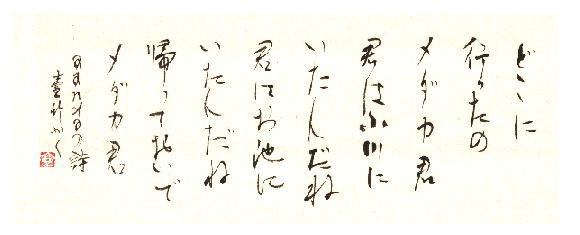 どこに
行ったの
メダカ君
君は小川に
いたんだね
君はお池に
いたんだね
帰っておいで
メダカ君
の詩